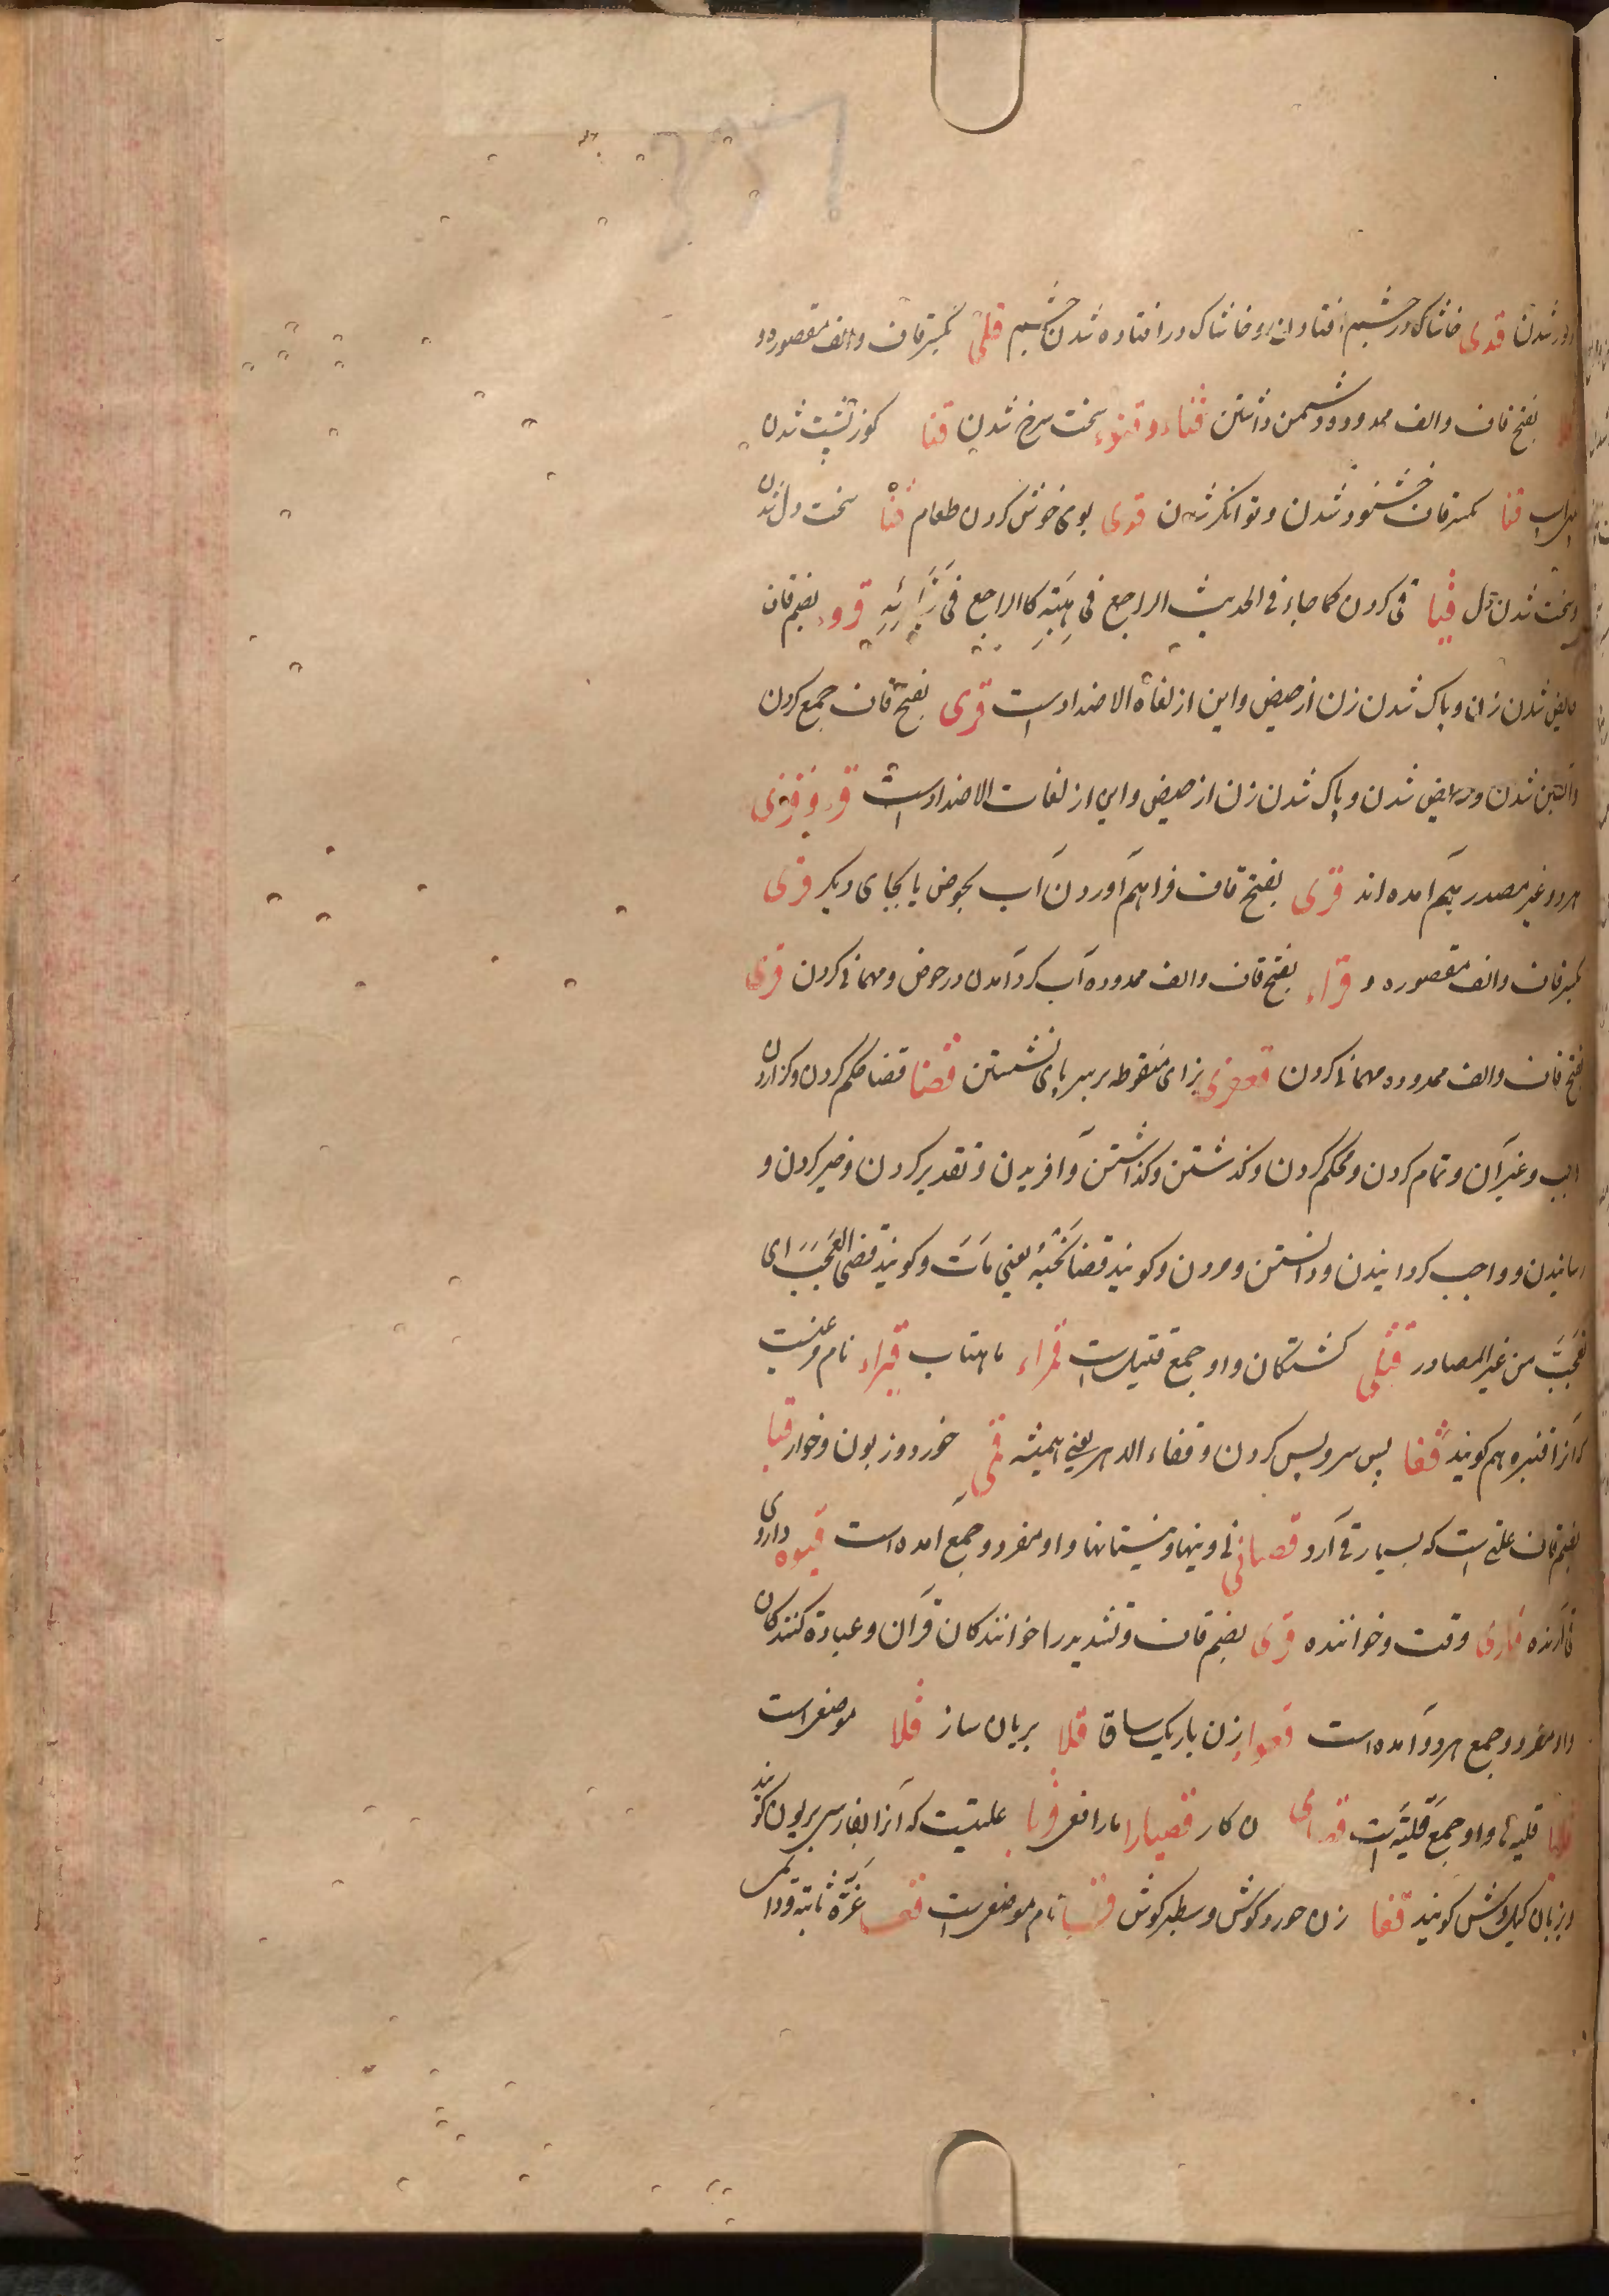 دور شدن قذی خاشاک در چشم افتادن و خاشاک در افتاده شدن چشم قلی بکسر قاف والف مقصوره و
قلا بفتح قاف والف ممدوده دشمن داشتن قناء و قنوء سخت سرخ شدن قنا کوز پشت شدن
قنا بکسر قاف خشنود شدن و توانگر شدن قدی بوی خوش کردن طعام قسا سخت دل شدن
و سخت شدن دل قیا قی کردن کما جاء فی الحدیث الراجع فی هبته کالراجع فی قروء بضم قاف
حایض شدن زن و پاک شدن زن از حیض و این از لغاة الاضداد است قری بفتح قاف جمع کردن
و آبستن شدن و حایض شدن و پاک شدن زن از حیض و این از لغات الاضداد است
هر دو غیر مصدر هم آمده اند قری بفتح قاف فراهم آوردن آب بحوض یا بجای دیگر قری
بکسر قاف والف مقصوره و قراء بفتح قاف والف ممدوده آب گرد آمدن در حوض و مهمانی کردن قری
بفتح قاف والف ممدوده مهمانی کردن قعفزی بزای منقوطه بر سر پای نشستن قضا قضا حکم کردن و گزاردن
و غیر آن و تمام کردن و محکم کردن و گذشتن و گذاشتن و آفریدن و تقدیر کردن و خبر کردن و
رسانیدن و واجب گردانیدن و دانستن و مردن و گویند قضا نحبه یعنی مات و گویند قضی العجب ای
تعجب من غیر المصادر قتلی کشتگان و او جمع قتیل است قمراء ماهتاب قبراء نام مرغیست
که آنرا قنبره هم گویند قفا پس سر و پس کردن و قفاء الدهر یعنی همیشه قمی خورد و زبون و خوار قیا
بضم قاف علتی است که بسیار قی آرد قصبا نی و نیها و نیستانها و او مفرد و جمع آمده است قیوء داروی
قی آرنده قاری وقت و خواننده قری بضم قاف و تشدید را خوانندگان قرآن و عبادة کنندگان
و او مفرد و جمع هر دو آمده است قعوا زن باریک ساق قلا بریان ساز قلا موضعی است
قلایا قلیه ها و او جمع قلیة است قصیارا مار افعی قوبا علتیست که آنرا بفارسی بریون گویند
و بزبان گیل گویند قفا زن خورد گوش و سطبر گوش قسا نام موضعی است